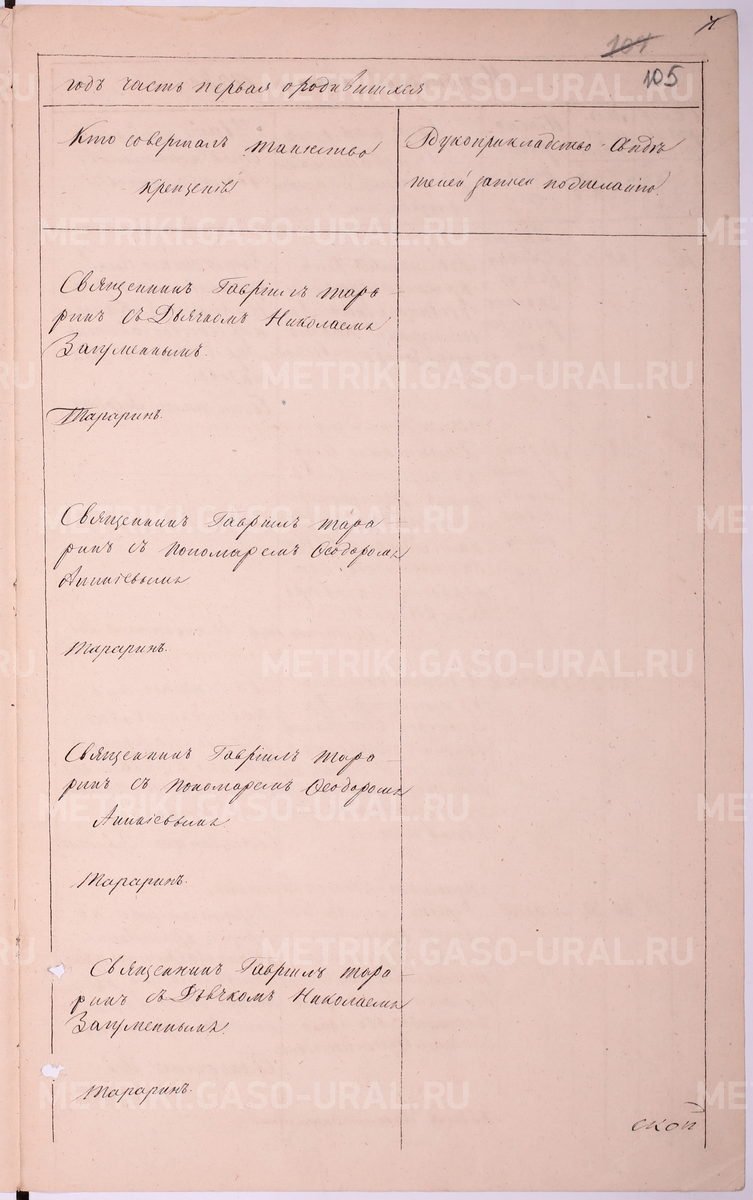 104
105
годъ часть первая о родившихся
Кто совершалъ таинство
крещенія
Рукоприкладство свидѣ
телей записи по желанію.
Священникъ Гавріилъ Тара
ринъ съ Дьячкомъ Николаемъ
Загуменнымъ.
Тараринъ.
Священникъ Гавріилъ Тара
ринъ съ пономаремъ Ѳеодоромъ
Аникіевымъ
Тараринъ.
Священникъ Гавріилъ Тара
ринъ съ пономаремъ Ѳеодоромъ
Аникіевымъ
Тараринъ.
Священникъ Гавріилъ Тара
ринъ съ Дьячкомъ Николаемъ
Загуменнымъ.
Тараринъ.
METRIKI.GASO-URAL.RU